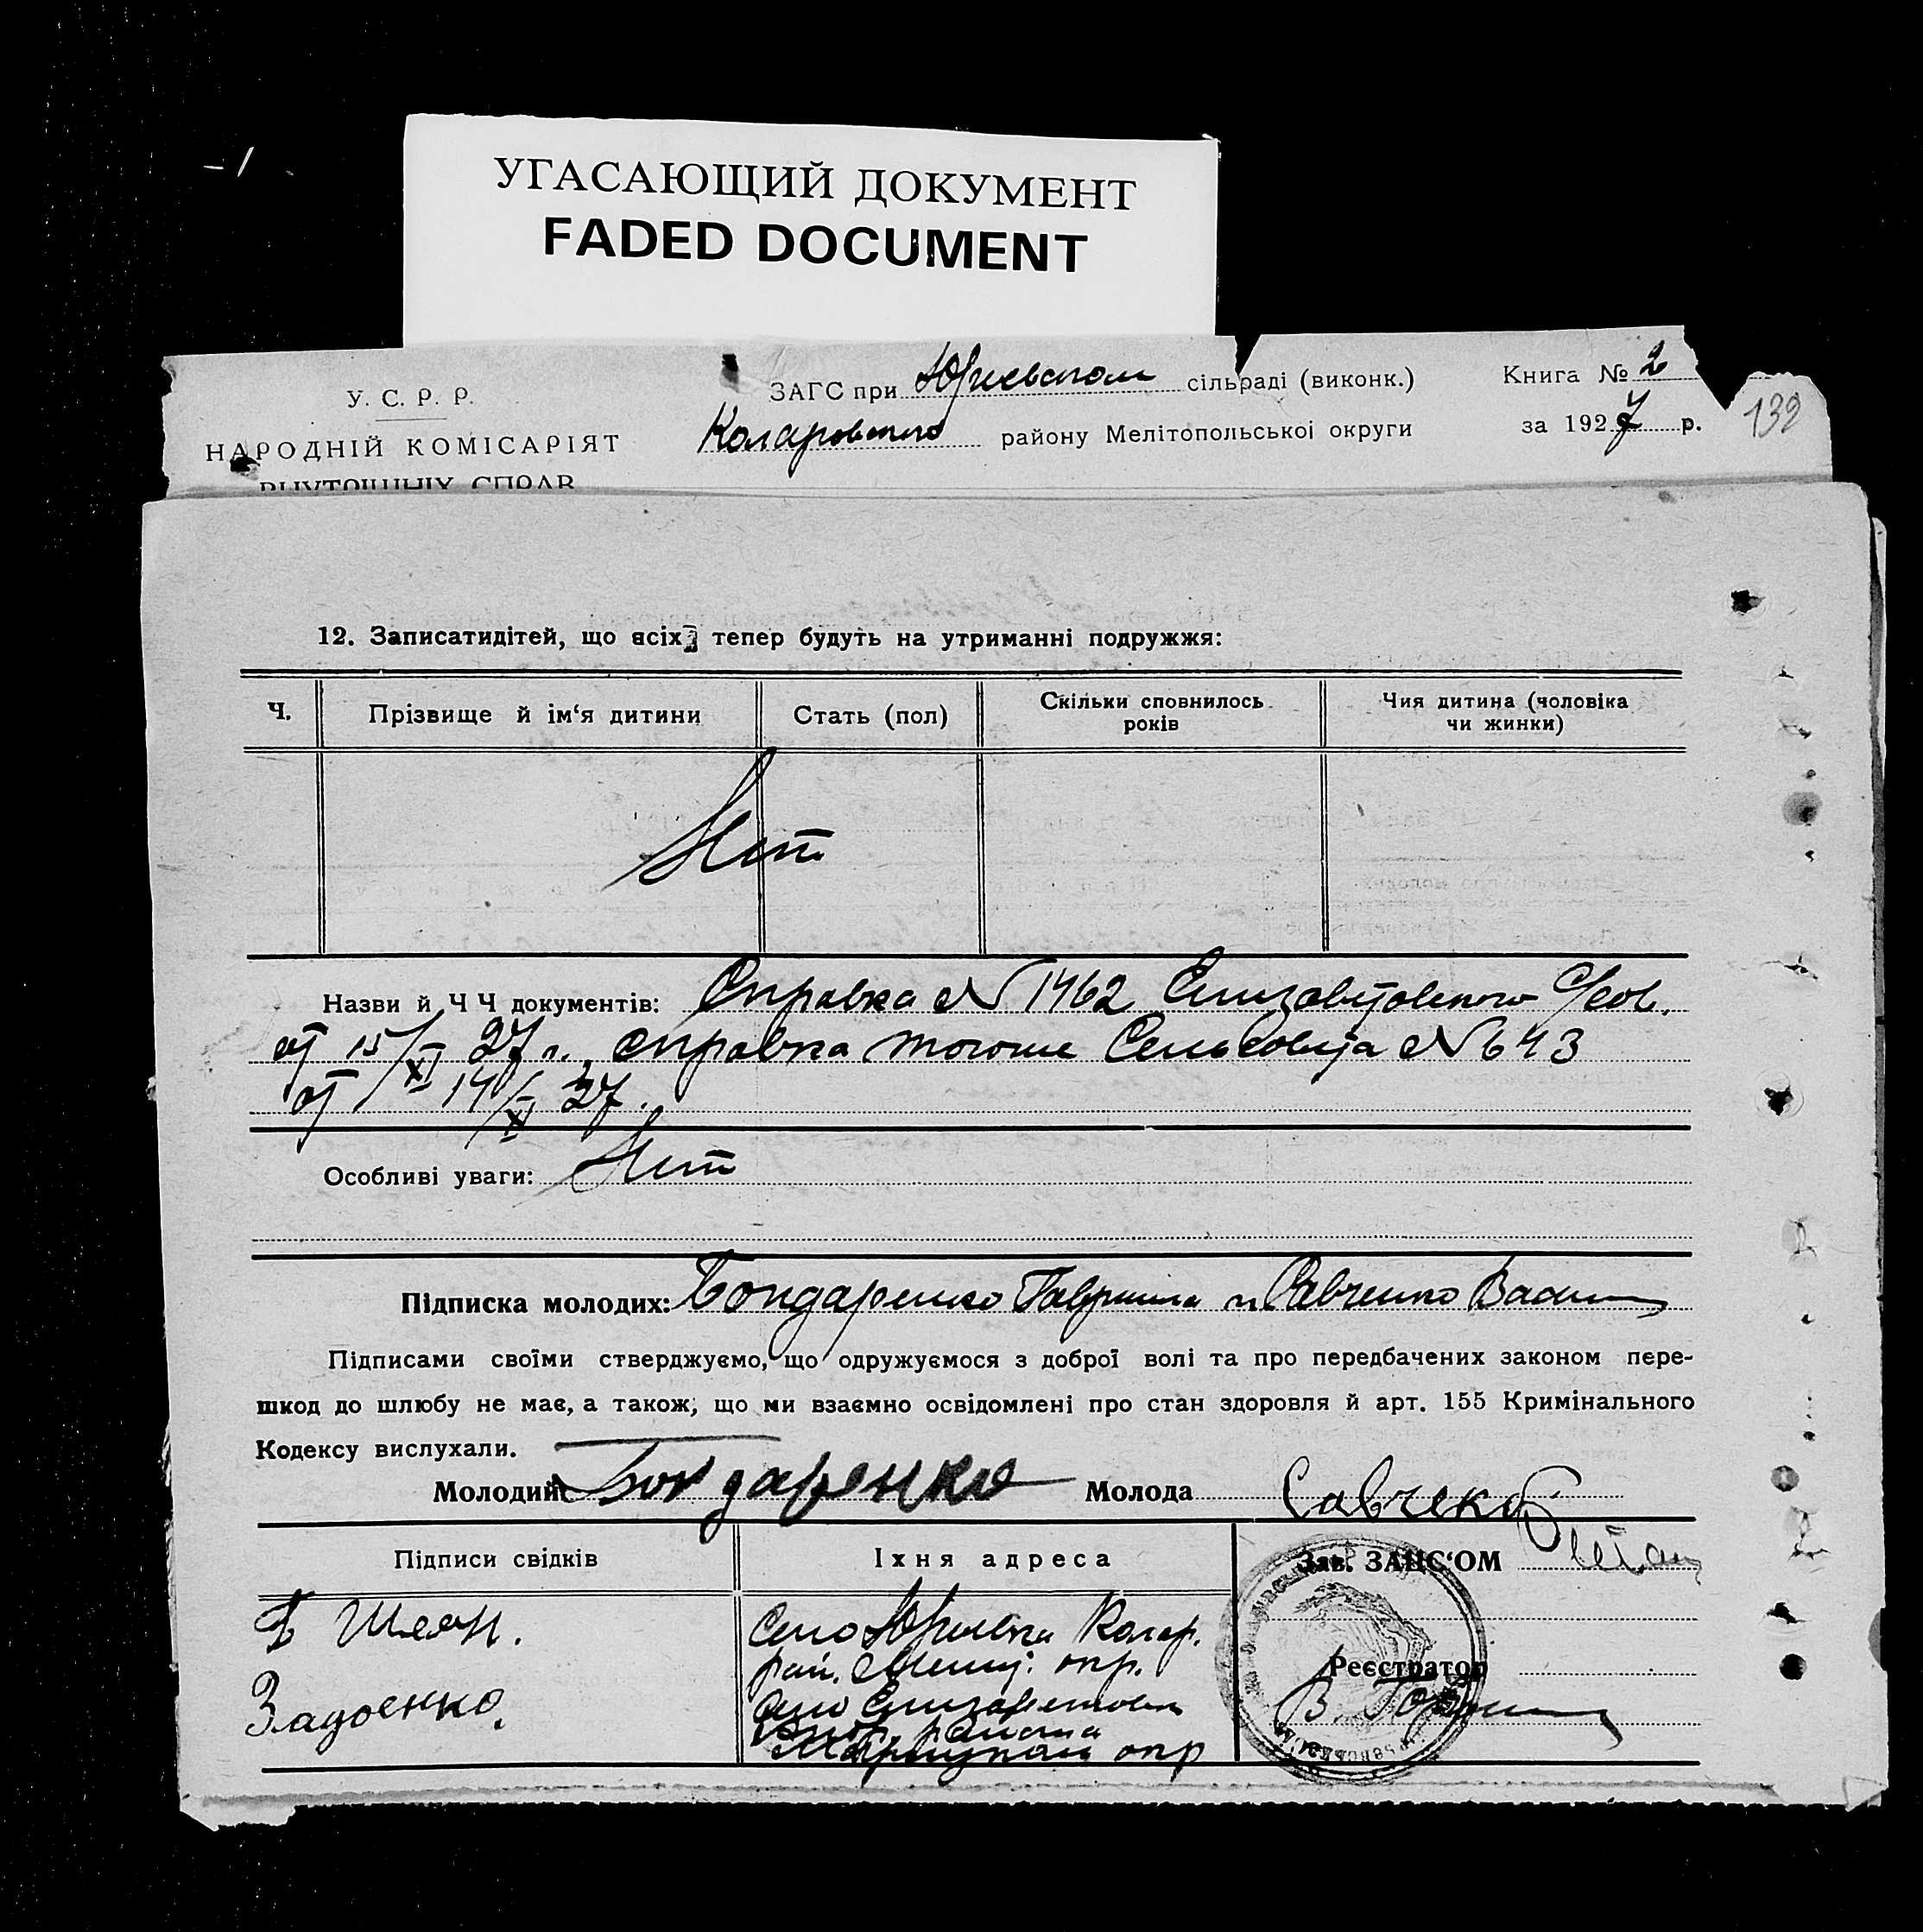 УГАСАЮЩИЙ ДОКУМЕНТ
FADED DOCUMENT
У. С. Р. Р.
НАРОДНІЙ КОМІСАРІЯТ
ВНУТРІШНІХ СПРАВ
ЗАГС при Юриевском сільраді (виконк.)
Коларовского району Мелітопольської округи
Книга № 2
за 1927 р.
139
12. Записатидітей, що всіх тепер будуть на утриманні подружжя:
Ч.
Прізвище й ім‘я дитини
Стать (пол)
Скільки сповнилось років
Чия дитина (чоловіка чи жинки)
Нет
Назви й Ч Ч документів: Справка № 1462 Елизаветовского С/сов.
от 15/XI 27 г. справка тогоже Сельсовета № 643
от 14/XI 27.
Особливі уваги: Нет
Підписка молодих: Бондаренко Гавриила и Савченко
Підписами своїми стверджуємо, що одружуємося з доброї волі та про передбачених законом пере-
шкод до шлюбу не має, а також, що ми взаємно освідомлені про стан здоровля й арт. 155 Кримінального
Кодексу вислухали.
Молодий Бондаренко Молода Савченко
Підписи свідків
Їхня адреса
Зав. ЗАЦС‘ОМ
Шиян.
Задоенко.
Село Юрьевка Колар.
рай. Мелит. окр.
село Елизаветовка
района
Мариупол окр
Реєстратор
В.